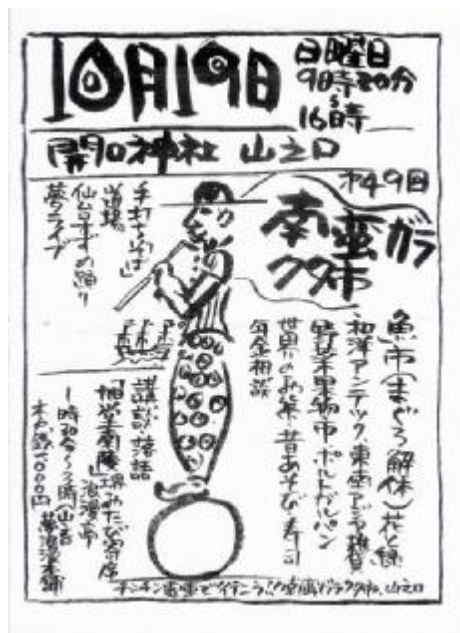 10月19日
日曜日
9時30分
〜
16時
開口神社 山之口
オ49回
南蛮ガラクタ市
魚市(まぐろ解体)花と緑
和洋アンテック、東南アジヤ雑貨
野菜果物市・ポルトガルパン
世界のお茶・昔あそび・寿司
年金相談
手打ちそば
道場
仙台すずめ踊り
夢ライブ
講談・落語
浪漫亭
1時30分〜3時(山吉
木戸銭1000円
チンチン電車でイテコラ!!南蛮ガラクタ市、山之口